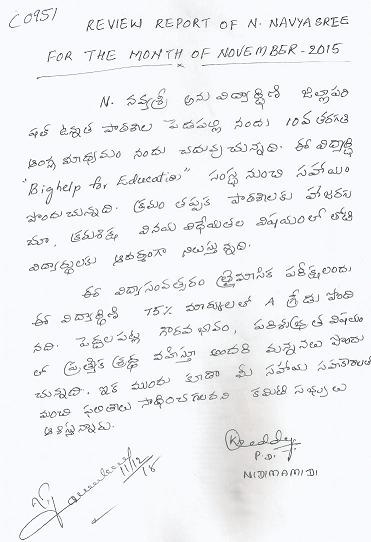 C0951
REVIEW REPORT OF N. NAVYASREE
FOR THE MONTH OF NOVEMBER-2015
N. నవ్యశ్రీ అను విద్యార్థిణి జిల్లాపరి
షత్ ఉన్నత పాఠశాల పెదపల్లి నందు 10వ తరగతి
ఆంగ్ల మాధ్యమం నందు చదువుచున్నది. ఈ విద్యార్థి
"Bighelp for Education" సంస్థ నుంచి సహాయం
పొందుచున్నది. క్రమం తప్పక పాఠశాలకు హాజరగు
చూ, క్రమశిక్షణ వినయ విధేయతల విషయంలో తోటి
విద్యార్థులకు ఆదర్శంగా నిలుస్తున్నది.
ఈ విద్యాసంవత్సరం త్రైమాసిక పరీక్షలందు
ఈ విద్యార్థిణి 75% మార్కులతో A గ్రేడు పొంది
నది. పెద్దలపట్ల గౌరవభావం, పరిశుభ్రత విషయం
లో ప్రత్యేక శ్రద్ధ వహిస్తూ అందరి మన్ననలు పొందు
చున్నది. ఇక ముందు కూడా మీ సహాయ సహకారాలతో
మంచి ఫలితాలు సాధించగలదని కమిటి సభ్యులు
ఆశిస్తున్నారు.
P.D.
NIDIMAMIDI
11/12/15